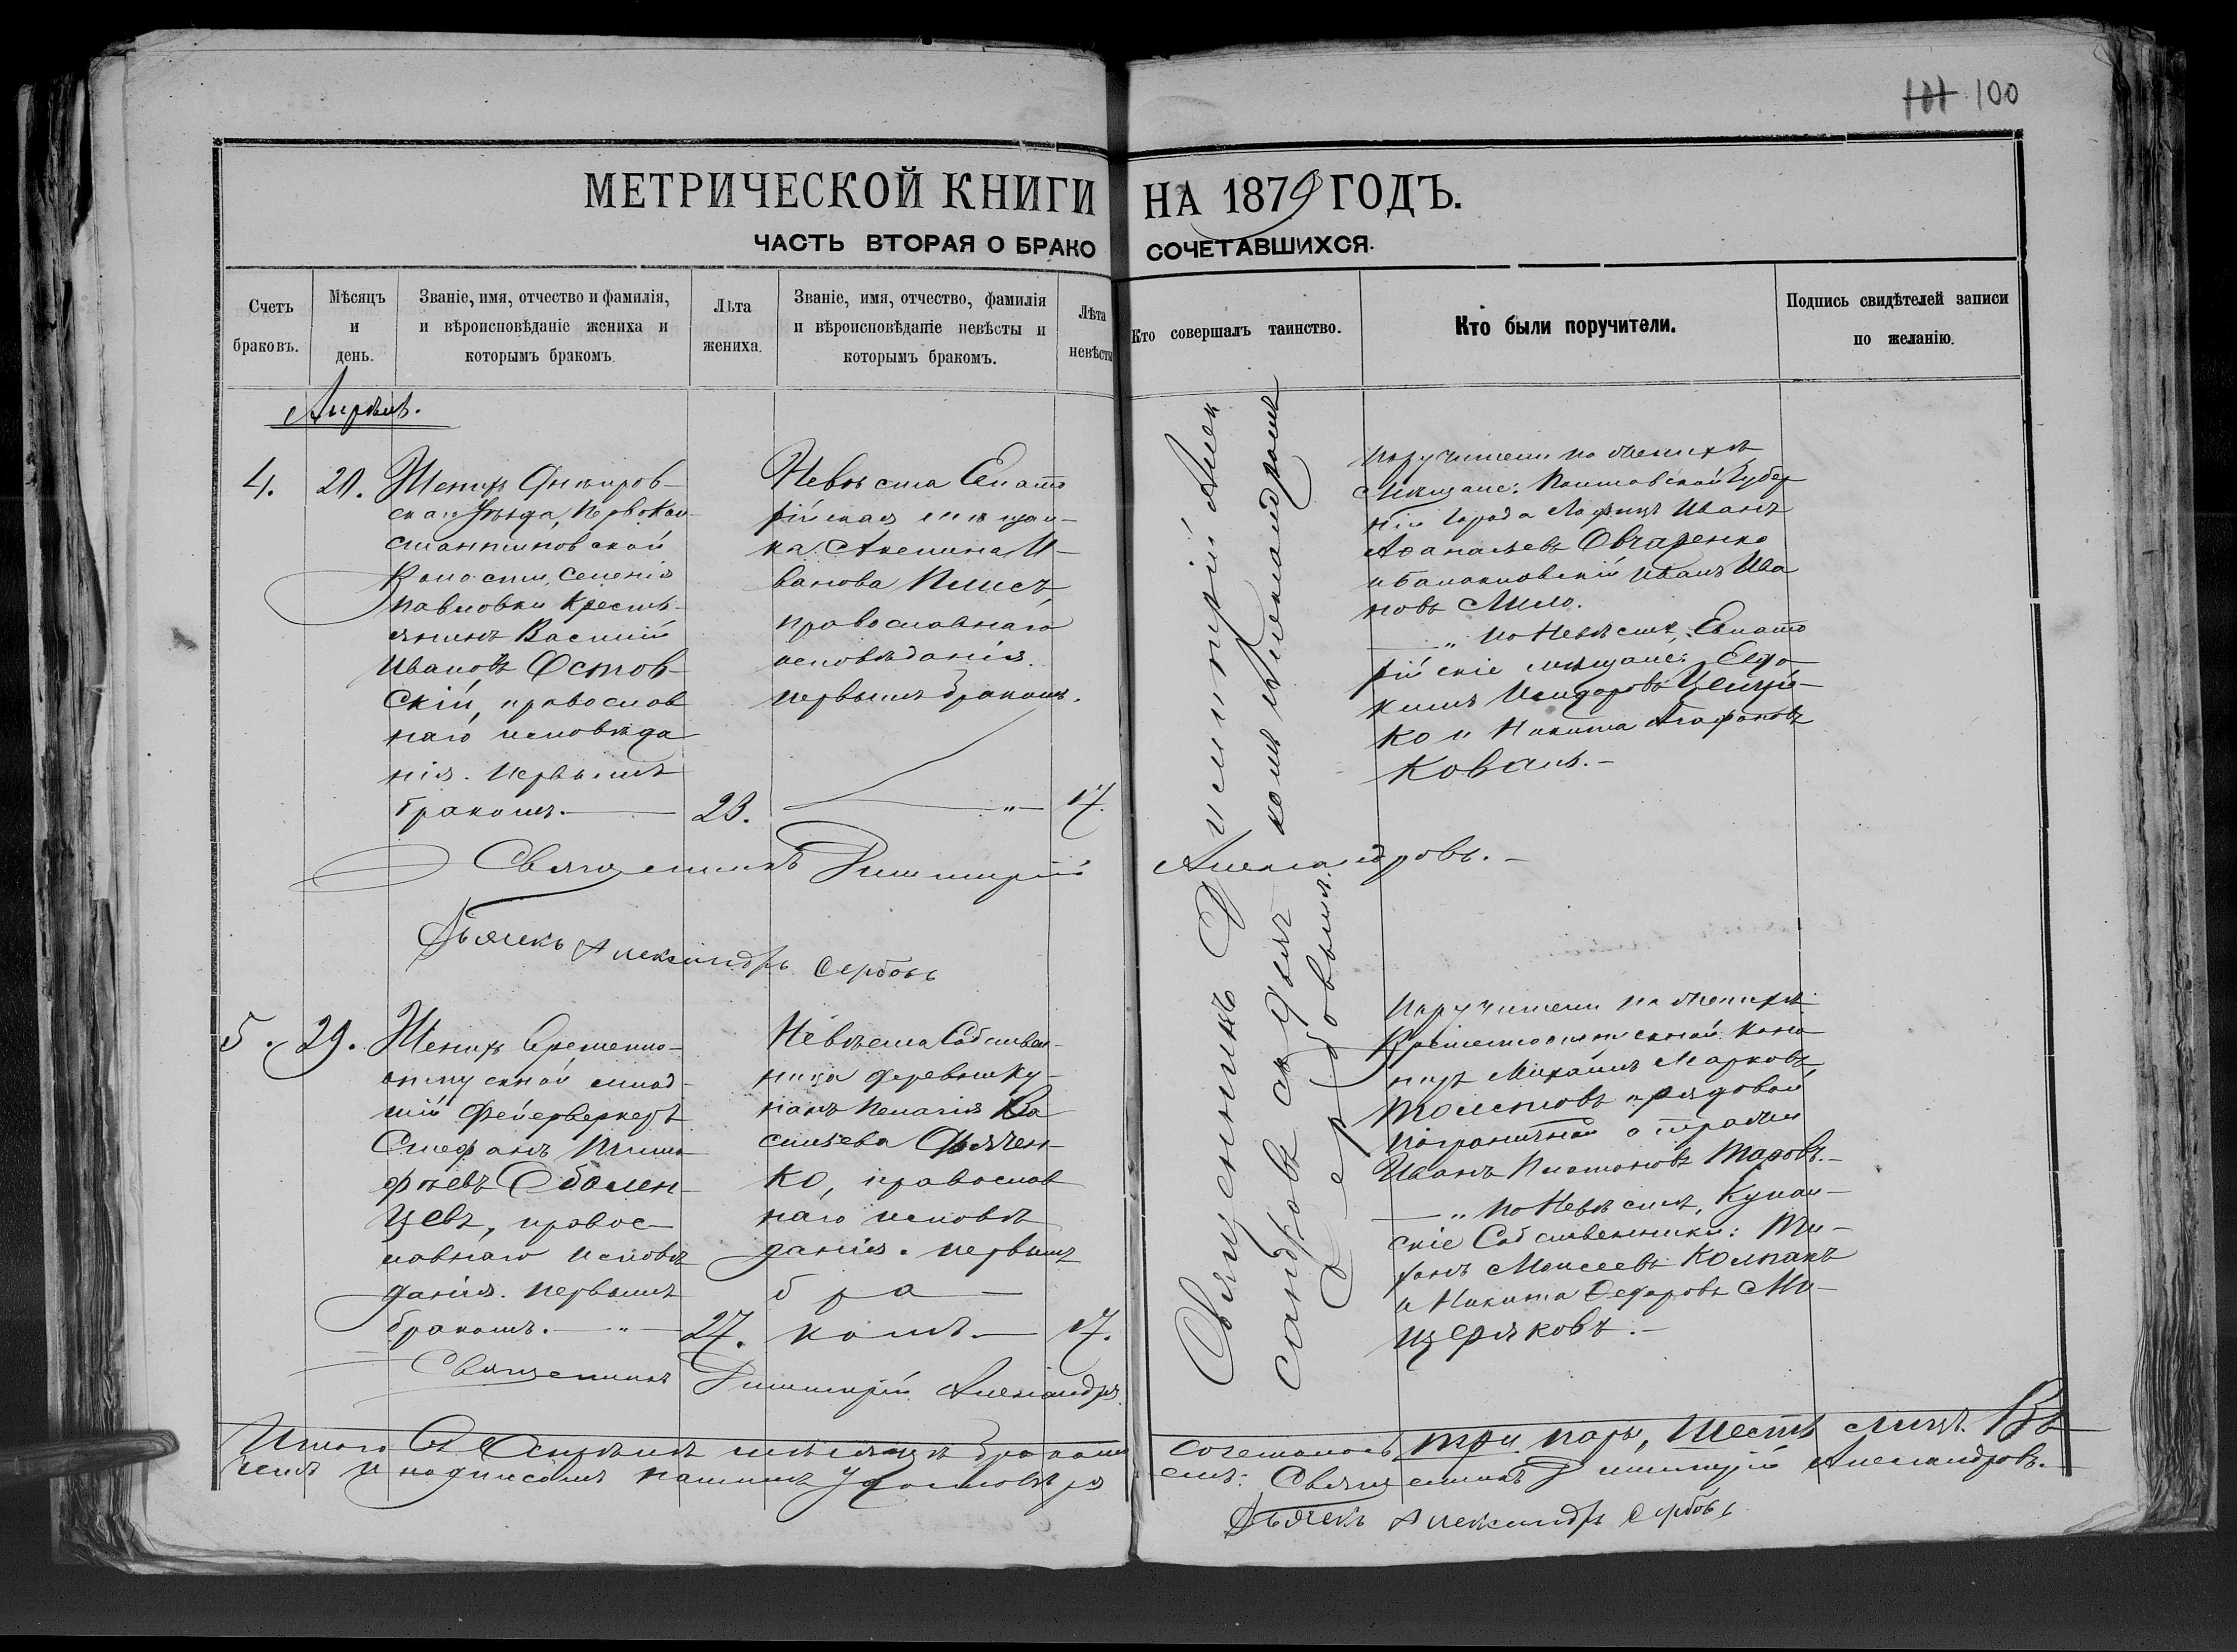 101 100
МЕТРИЧЕСКОЙ КНИГИ НА 1879 ГОДЪ.
ЧАСТЬ ВТОРАЯ О БРАКОСОЧЕТАВШИХСЯ.
Счетъ браковъ.
Мѣсяцъ и день.
Званіе, имя, отчество и фамилія,
и вѣроисповѣданіе жениха и
которымъ бракомъ.
Лѣта жениха.
Званіе, имя, отчество, фамилія
и вѣроисповѣданіе невѣсты и
которымъ бракомъ.
Лѣта невѣсты
Кто совершалъ таинство.
Кто были поручители.
Подпись свидѣтелей записи
по желанію.
Апрѣль.
4. 20. Женихъ Днѣпров-
скаго Уѣзда, Первокон-
стантиновской
Волости, Селенія
Павловки крестья-
янинъ Василій
Ивановъ Остов-
скій, православ
наго исповѣда
нія. Первымъ
бракомъ. 23.
Невѣста Евпато
рійская мѣщан-
ка: Акилина И-
ванова
православнаго
исповѣданія.
первымъ бракомъ.
17.
Священникъ Димитрій Алек
сандровъ съ Дьяч
комъ Александромъ
Сербовымъ.
Поручители по женихѣ
Мѣщане: Полтавской Губер
ніи города Лохвицъ Иванъ
Афанасьевъ Овчаренко
и Балаклавскій Иванъ Ива
новъ
„ по Невѣстѣ, Евпато
рійскіе мѣщане: Евдо
кимъ Исидоровъ
ко и Никита Агафоновъ
Коваль.
Священникъ Димитрій Александровъ.
Дьячекъ Александръ Сербовъ
5. 29. Женихъ временно-
отпускной млад-
шій Фейерверкеръ
Стефанъ Тимо
фѣевъ Оболен-
цевъ, правос-
лавнаго исповѣ
данія. Первымъ
бракомъ. „ 27.
Невѣста Собствен-
ница деревни Ку-
нанъ Пелагія Ва
сильева Дьячен-
ко, православ
наго исповѣ
данія. первымъ
бра
комъ. 17.
Поручители по женихѣ
Временноотпускной кано
ниръ Михаилъ Марковъ
Толстовъ и рядовой
пограничной стражи
Иванъ Платоновъ Таровъ.
„ по Невѣстѣ, Кунан-
скіе Собственники: Ти-
фонъ Моисеевъ Колпакъ
и Никита Федоровъ Ме-
щеряковъ.
Священникъ Димитрій Александр.
Итого въ Апрѣлѣ мѣсяцѣ бракомъ сочеталось три пары, шесть лицъ. Въ
чемъ и подписомъ нашимъ удостовѣряемъ: Священникъ Димитрій Александровъ.
Дьячекъ Александръ Сербовъ